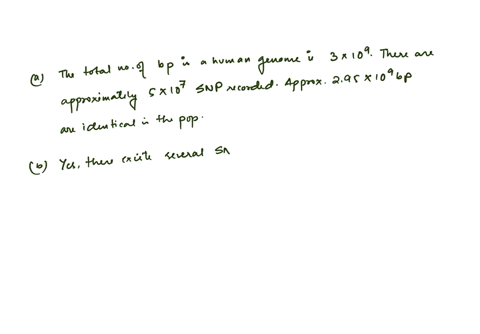 (a) The total no. of bp in a human genome is 3 × 10⁹. There are
approximately 5 × 10⁷ SNP recorded. Approx. 2.95 × 10⁹ bp
are identical in the pop.
(b) Yes, there exists several SN